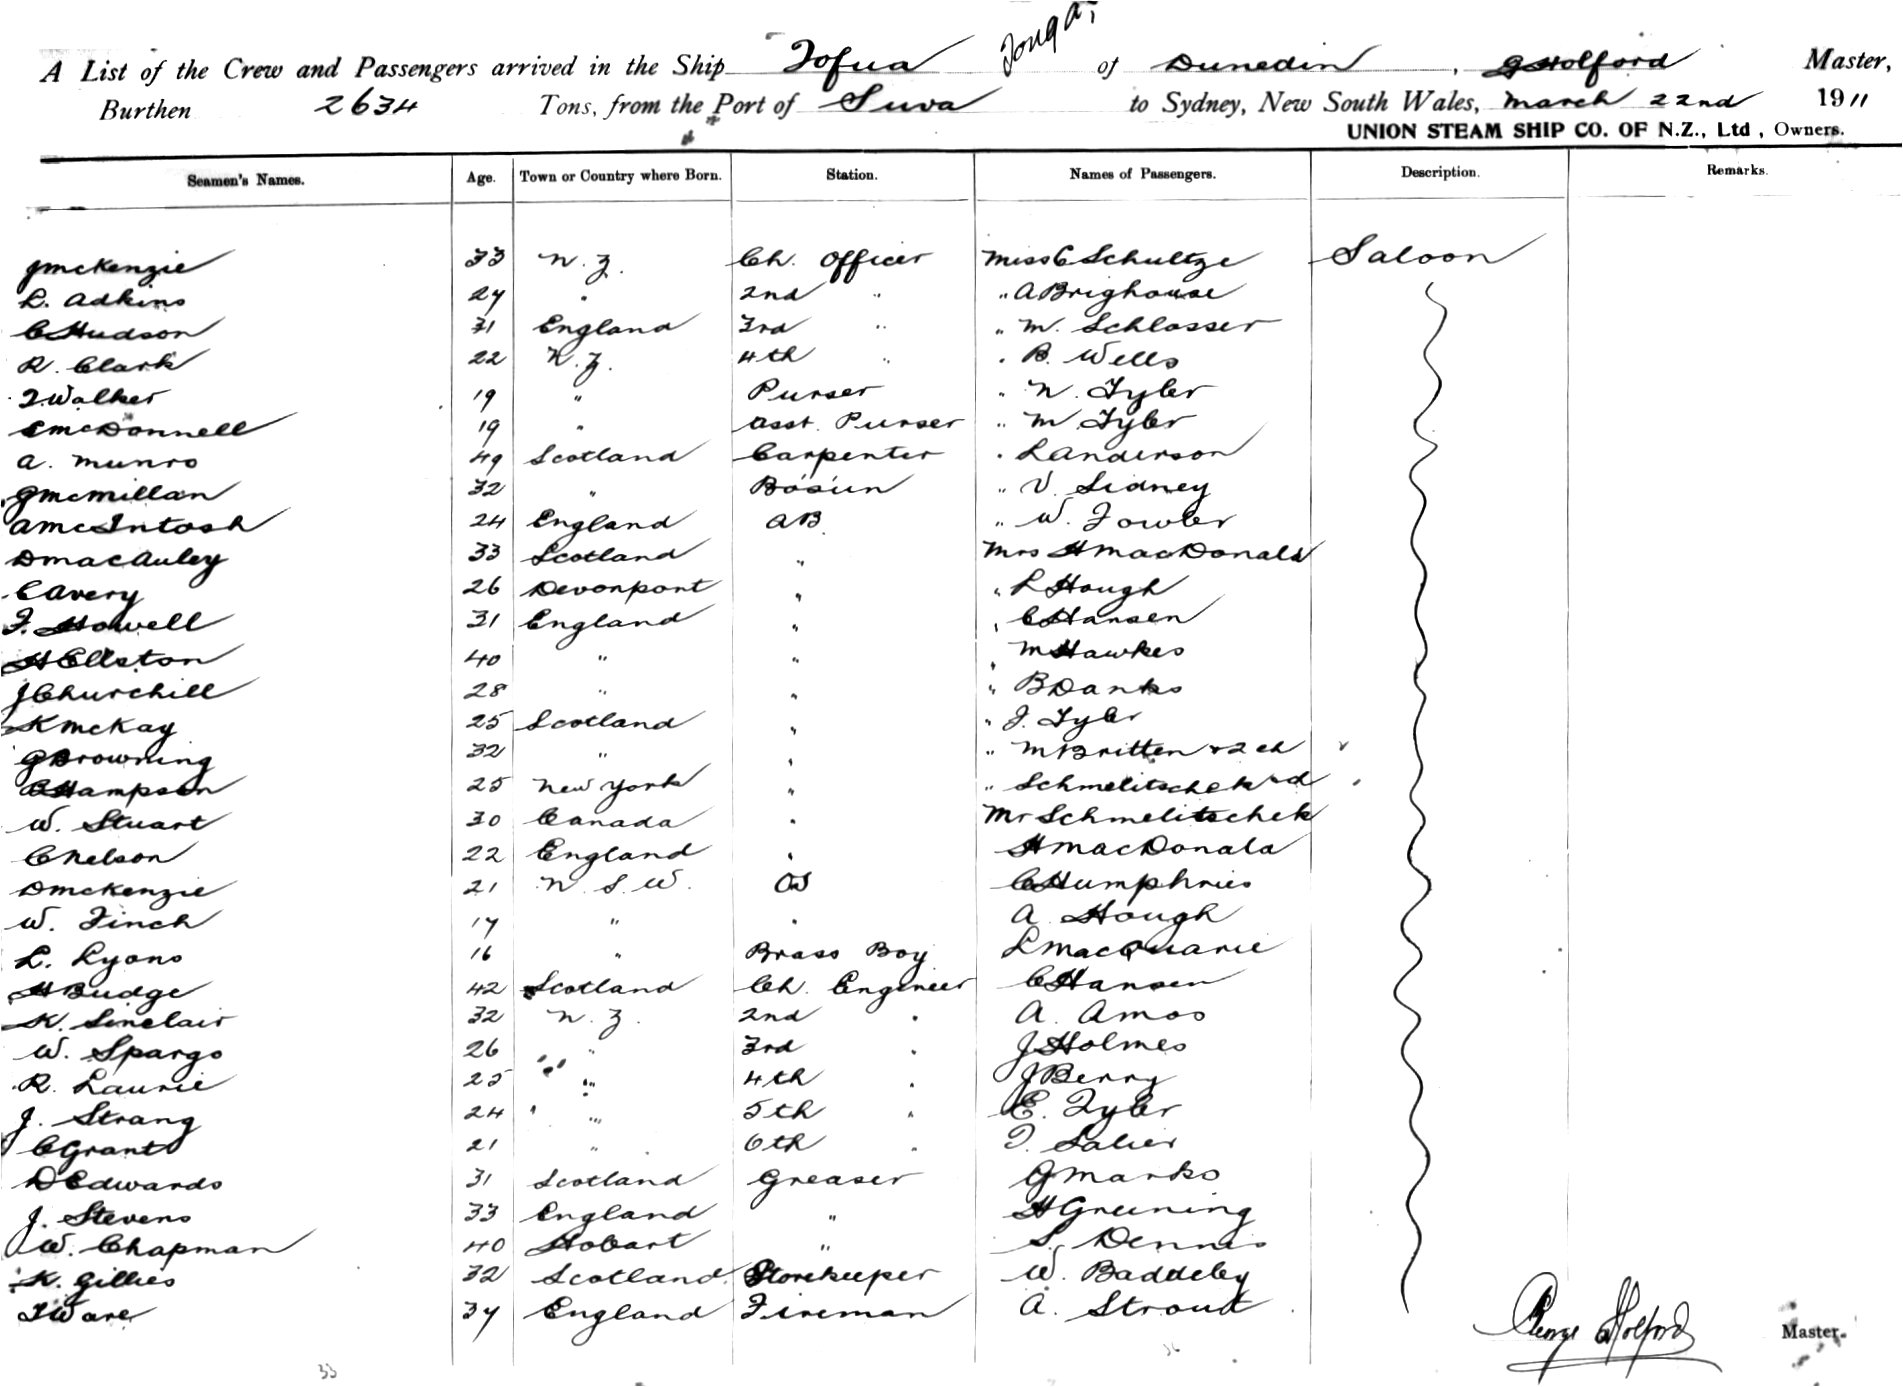 Tonga,
A List of the Crew and Passengers arrived in the Ship Tofua of Dunedin, G Holford Master,
Burthen 2634 Tons, from the Port of Suva to Sydney, New South Wales, March 22nd 1911
UNION STEAM SHIP CO. OF N.Z., Ltd, Owners.
Seamen's Names. Age. Town or Country where Born. Station. Names of Passengers. Description. Remarks.
J McKenzie 33 N.Z. Ch. Officer Miss C Schultze Saloon
L. Adkins 27 " 2nd " " A Brighouse
C Hudson 31 England 3rd " " M. Schlosser
R. Clark 22 N.Z. 4th " " B. Wells
T. Walker 19 " Purser " N. Tyler
McDonnell 19 " Asst. Purser " M Tyler
A. Munro 49 Scotland Carpenter " L Anderson
G McMillan 32 " Bosun " V. Sidney
A McIntosh 24 England AB " W. Fowler
D MacAuley 33 Scotland " Mrs H MacDonald
C Avery 26 Devonport " " L Hough
F. Howell 31 England " " C Hansen
H Ellston 40 " " " M Hawkes
J Churchill 28 " " " B Danks
K McKay 25 Scotland " " J. Tyler
G Browning 32 " " " M Britten & 2 ch
Hampson 25 New York " " Schmelitschek & d
W. Stuart 30 Canada " Mr Schmelitschek
C Nelson 22 England " H MacDonald
D McKenzie 21 N.S.W. OS C Humphries
W. Finch 17 " " A. Hough
L. Lyons 16 " Brass Boy L MacQuarie
H Budge 42 Scotland Ch. Engineer C Hansen
K. Sinclair 32 N.Z. 2nd " A. Amos
W. Spargo 26 " 3rd " J Holmes
R. Laurie 25 " 4th " J Berry
J. Strang 24 " 5th " E. Tyler
C Grant 21 " 6th " T. Salier
D Edwards 31 Scotland Greaser G Marks
J. Stevens 33 England " H Greining
W. Chapman 40 Hobart " S. Dennis
K. Gillies 32 Scotland Storekeeper W. Baddeley
T Ware 37 England Fireman A. Stroud
George Holford Master.
33 36